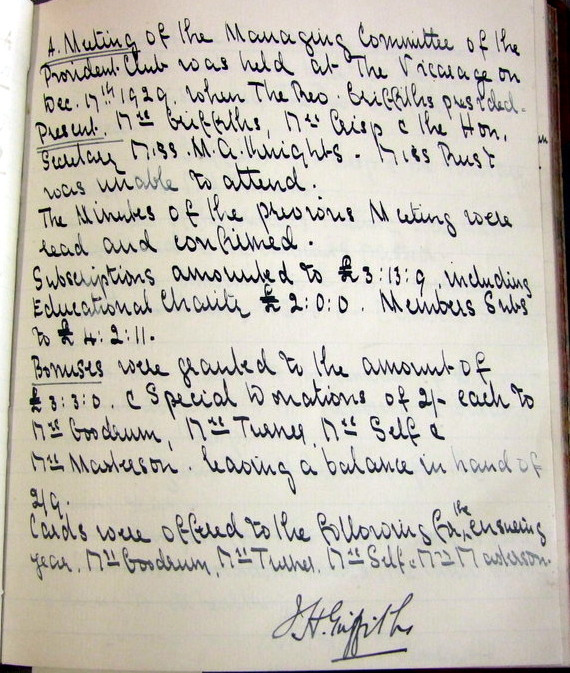 A. Meeting of the Managing Committee of the
Provident Club was held at The Vicarage on
Dec. 17th 1929. when The Rev. Griffiths presided.
Present. Mrs Griffiths, Mrs Crisp & the Hon.
Secretary Miss. M.A. Knights - Miss Rust
was unable to attend.
The Minutes of the previous Meeting were
read and confirmed.
Subscriptions amounted to £3:13:9. including
Educational Charity £2:0:0. Members Subs
to £4:2:11.
Bonuses were granted to the amount of
£3:3:0. & Special Donations of 2/- each to
Mrs Goodrum, Mrs Turner, Mrs Self &
Mrs Masterson. leaving a balance in hand of
2/9.
Cards were offered to the following for the ensueing
year. Mrs Goodrum, Mrs Turner. Mrs Self & Mrs Masterson.
J.H. Griffiths